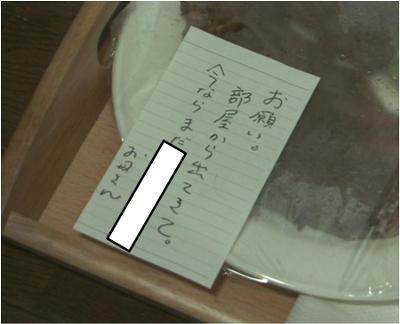 お願い。
部屋から出てきて。
今ならまだ
お母さん